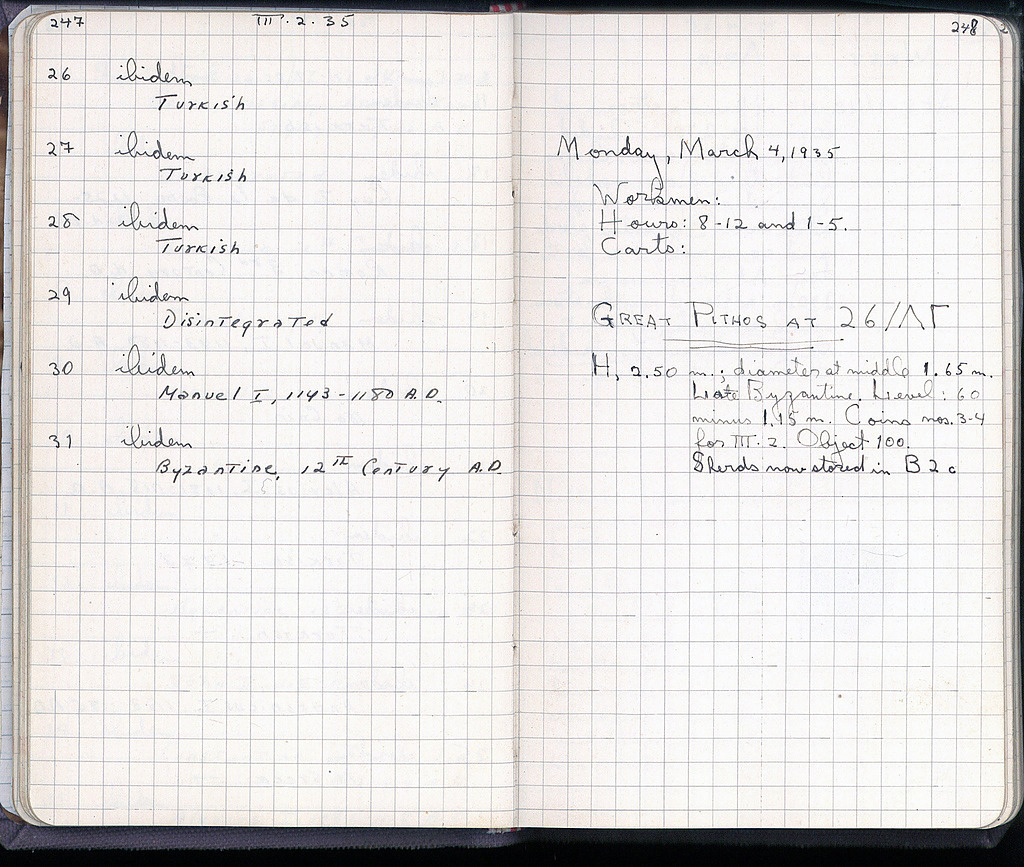 247 III.2.35
26 ibidem
Turkish
27 ibidem
Turkish
28 ibidem
Turkish
29 ibidem
Disintegrated
30 ibidem
Manuel I, 1143-1180 A.D.
31 ibidem
Byzantine, 12th Century A.D.
248
Monday, March 4, 1935
Workmen:
Hours: 8-12 and 1-5.
Carts:
GREAT PITHOS AT 26/ΛΓ
H, 2.50 m.; diameter at middle 1.65 m.
Late Byzantine. Level: 60
minus 1.15 m. Coins nos. 3-4
for III.2. Object 100.
Sherds now stored in B2c